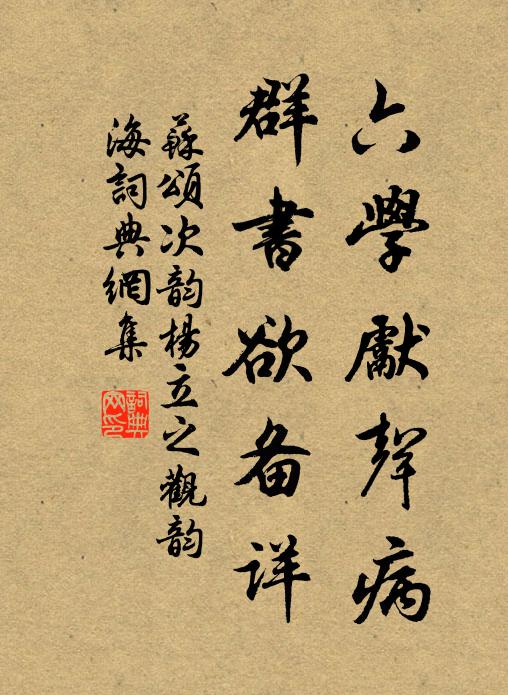 六學獻聲病
群書欲备详
蘇頌次韵楊立之觀韵
海詞典網集
詞典
网印